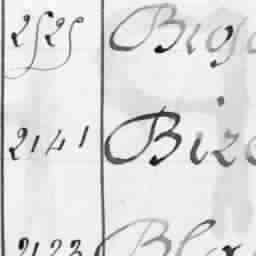 2525 Bios
2141 Bize
2123 Bla